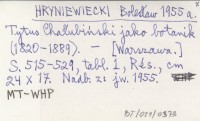 HRYNIEWIECKI Bolesław 1955 a.
Tytus Chałubiński jako botanik
(1820-1889). — [Warszawa.]
S. 515-529, tabl. 1, Rés., cm
24 X 17. Nadb. z: jw. 1955.
MT-WHP
BT/019/0373